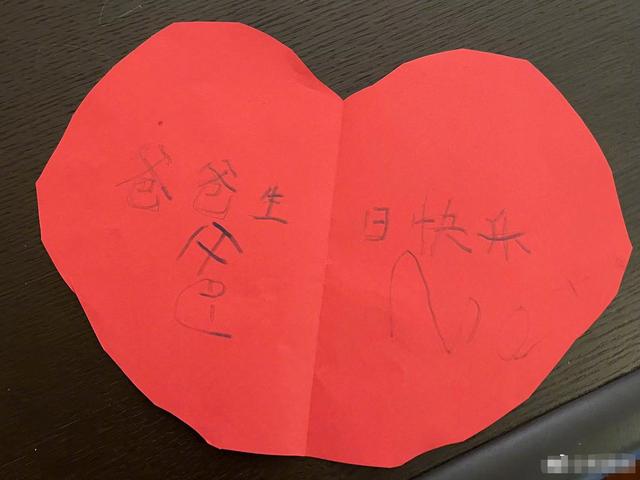 爸爸生日快乐
爸